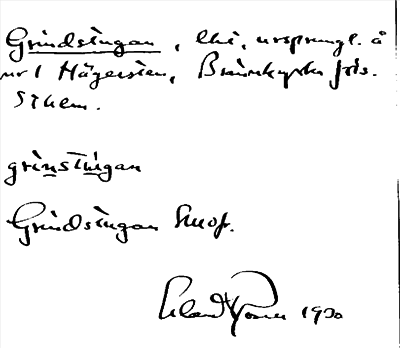 Grindstugan, lht, ursprungl. å
nr 1 Hägersten, Brännkyrka förs.
Sthlm.
grinstu̱gan
Grindstugan
1930